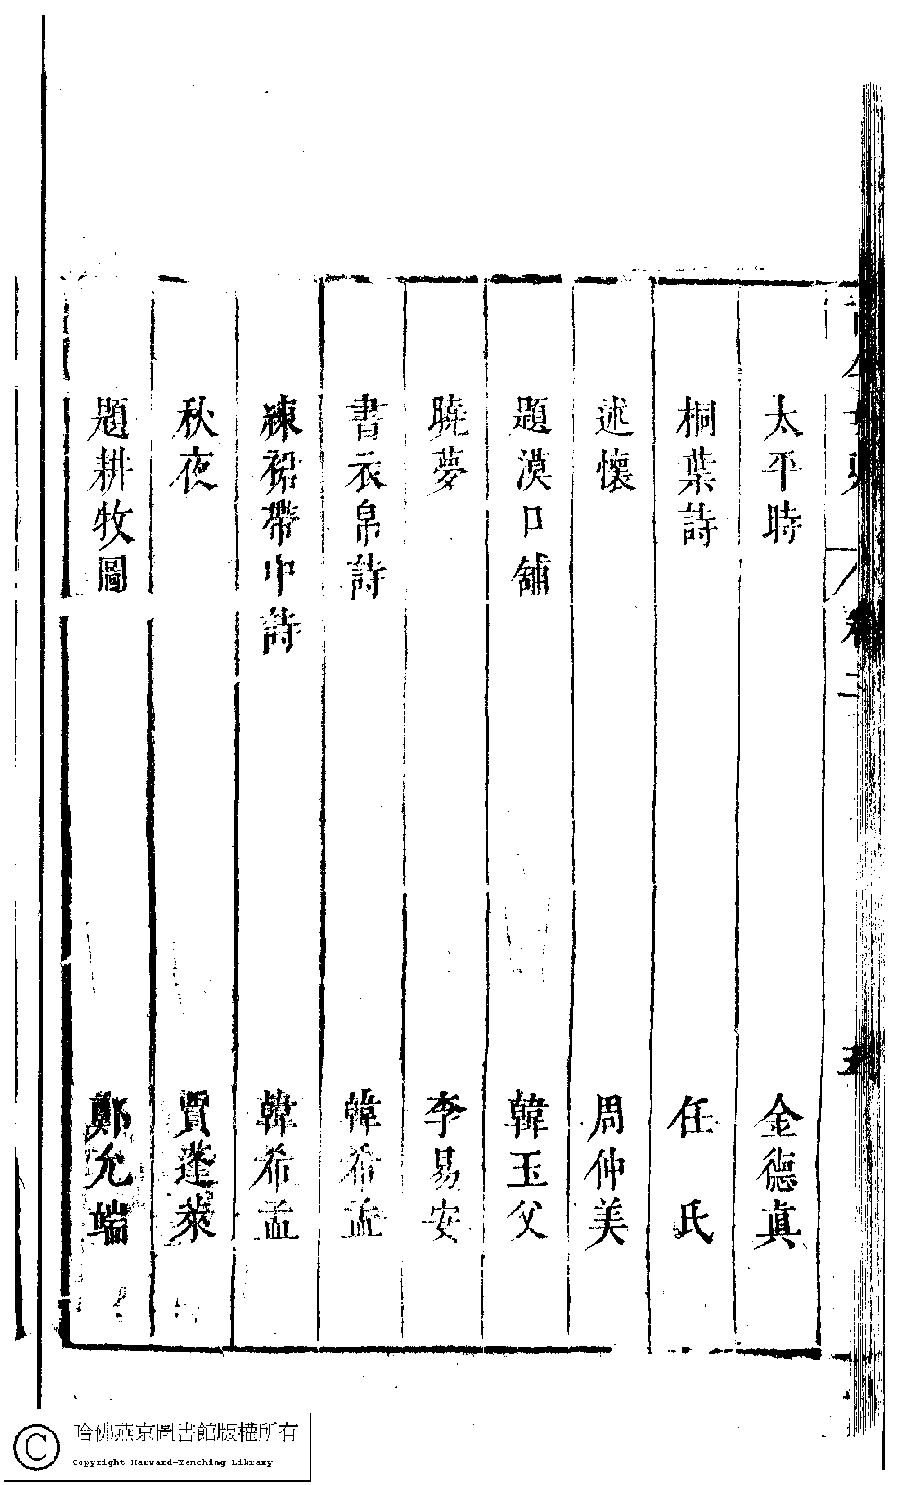 太平時 金德真
桐葉詩 任氏
述懷 周仲美
題漠口舖 韓玉父
曉夢 李易安
書衣帛詩 韓希孟
練裙帶中詩 韓希孟
秋夜 賈蓬萊
題耕牧圖 鄭允端
哈佛燕京圖書館版權所有
Copyright Harvard-Yenching Library